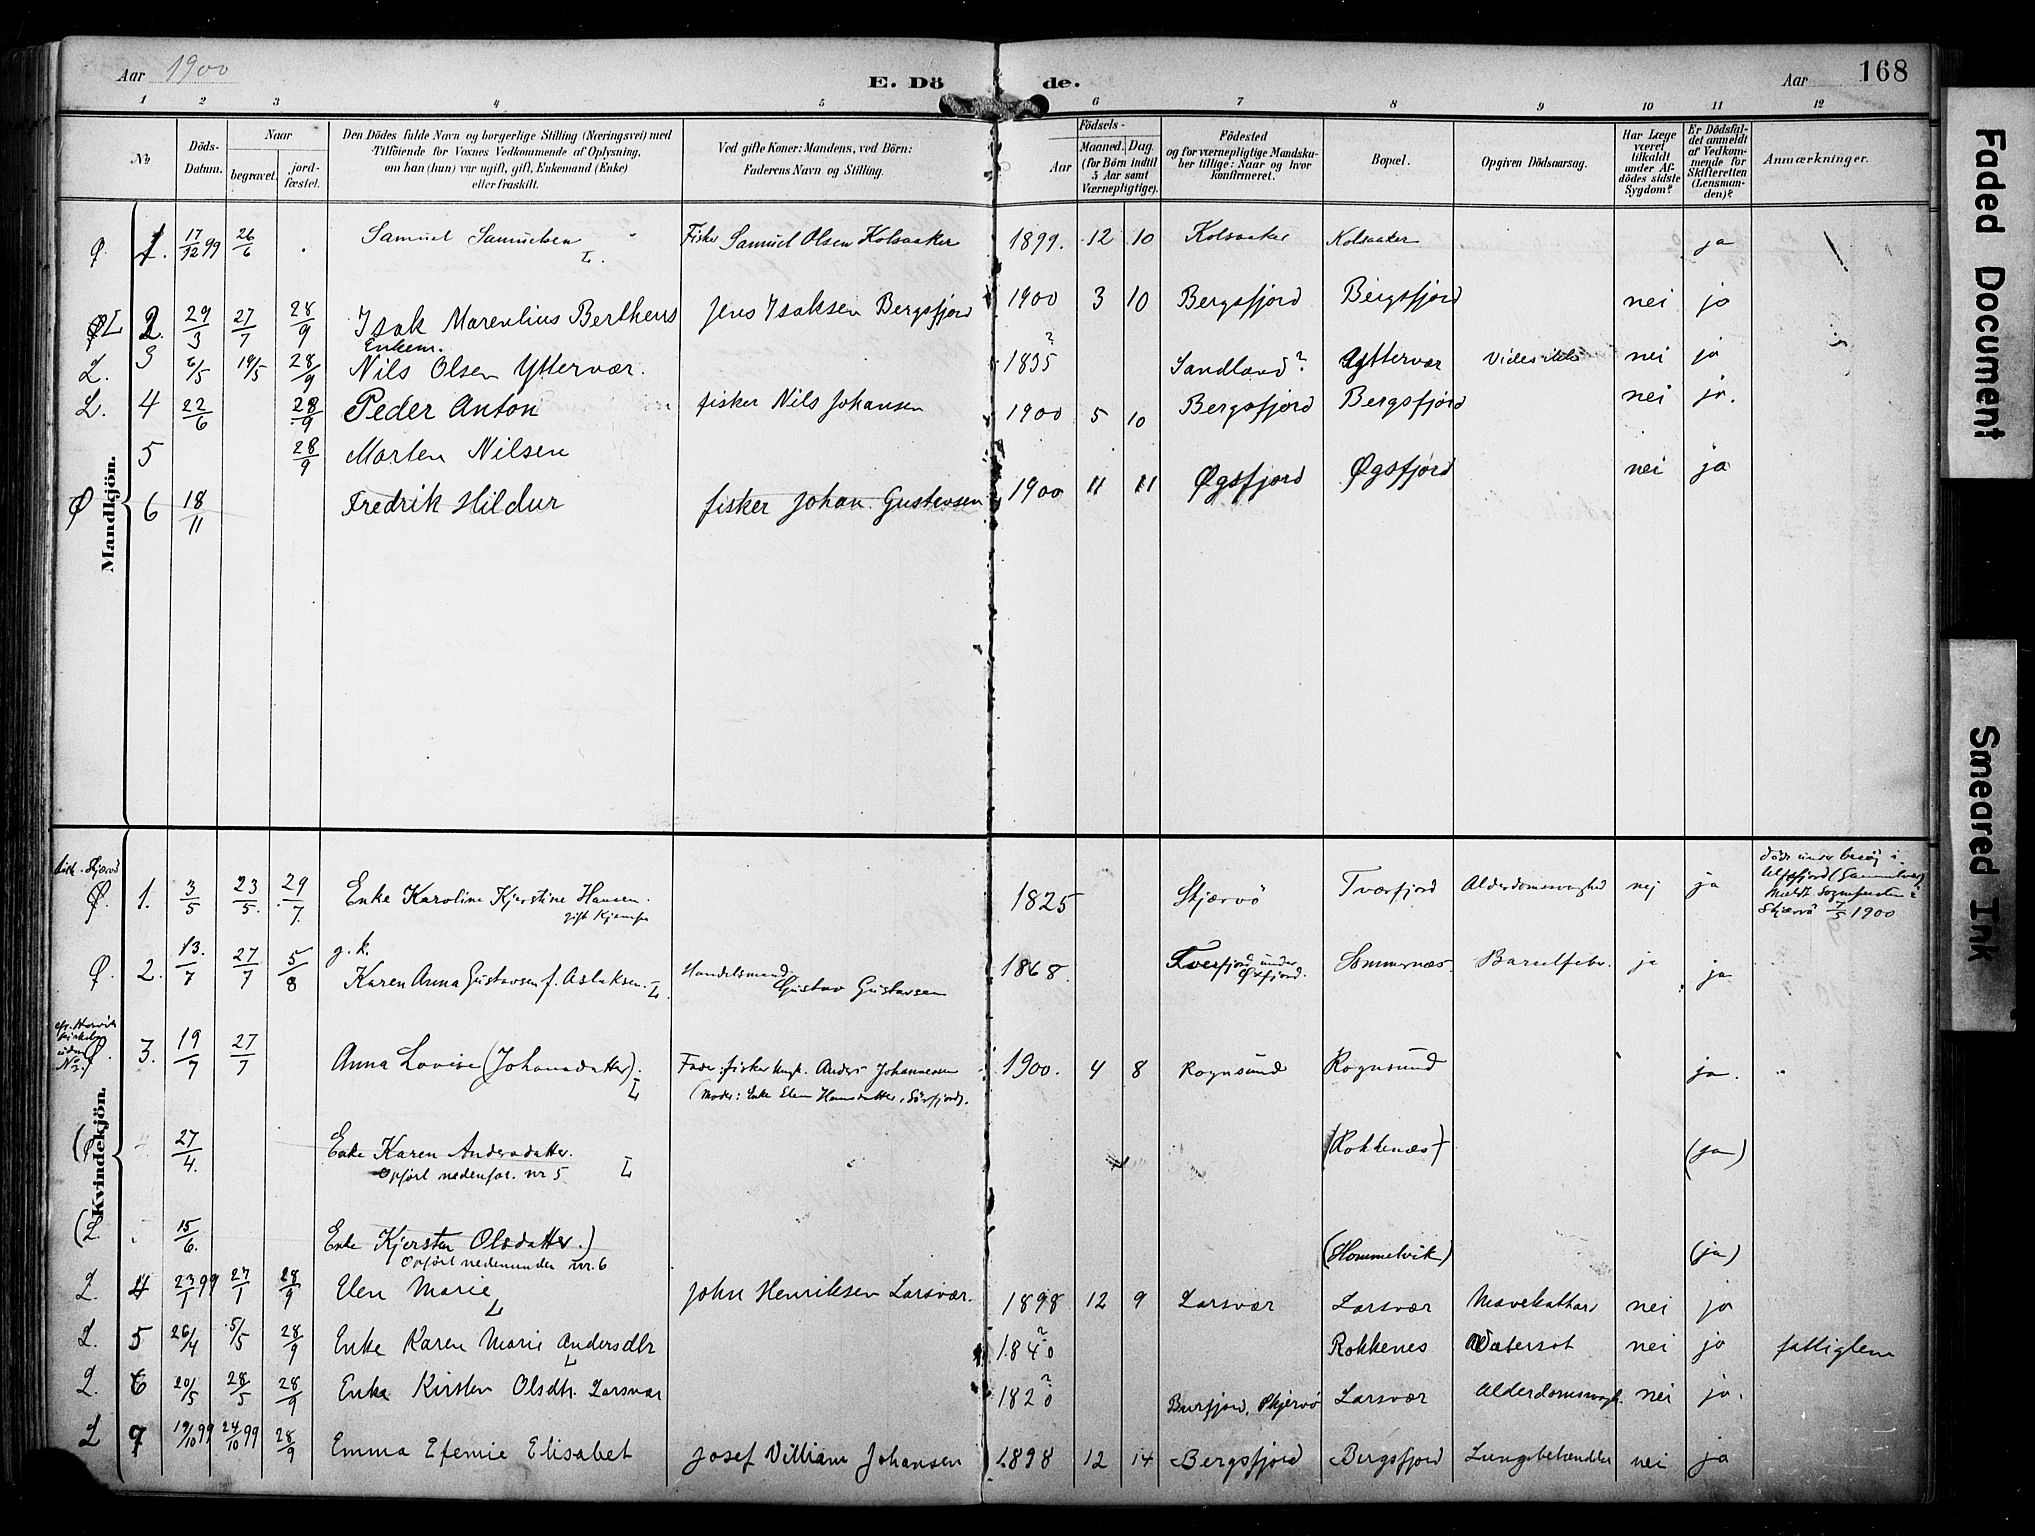 Aar 1900 E. Dö de. Aar 168
1 2 3 4 5 6 7 8 9 10 11 12
No. Döds-Datum. Naar begravet. jord-fæstet. Den Dödes fulde Navn og borgerlige Stilling (Næringsvei) med Tilföiende for Voxnes Vedkommende af Oplysning, om han (hun) var ugift, gift, Enkemand (Enke) eller fraskilt. Ved gifte Koner: Mandens, ved Börn: Faderens Navn og Stilling. Födsels- Aar Maaned. Dag. (for Börn indtil 5 Aar samt Værnepligtige). Födested og for værnepligtige Mandskaber tillige: Naar og hvor konfirmeret. Bopæl. Opgiven Dödsaarsag. Har Læge været tilkaldt under Afdödes sidste Sygdom? Er Dödsfaldet anmeldt af Vedkommende for Skifteretten (Lensmanden)? Anmærkninger.
Mandkjön.
Ø 1. 17/12 99 26/6 Samuel Samuelsen L. Fisker Samuel Olsen Kolsaaker 1899. 12 10 Kolsaaker Kolsaaker ja
ØL 2. 29/3 27/7 28/9 Isak Marentius Berthens Jens Isaksen Bergsfjord 1900 3 10 Bergsfjord Bergsfjord nei ja
L. 3 6/5 19/5 28/9 Enkem. Nils Olsen Yttervær. 1835 ? Sandland? Yttervær nei ja
L. 4 22/6 28/9 Peder Anton fisker Nils Johansen 1900 5 10 Bergsfjord Bergsfjord nei ja.
5 28/9 Morten Nilsen
Ø 6 18/11 Fredrik Hildur fisker Johan Gustavsen 1900 11 11 Øgsfjord Øgsfjord nei ja
Kvindekjön.
Ø. 1. 3/5 23/5. 29/7. Enke Karoline Kjerstine Hansen. 1825 Skjærvö Tværfjord Alderdomssvaghed nej ja
Skjærvö 7/5 1900
Ø. 2. 13./7 27/7 5/8 g. k. Karen Anna Gustavsen f. Aslaksen. L. Handelsmand Gustav Gustavsen 1868. Tverfjord under Øxfjord. Sommernæs. Barselfeber. ja ja
Ø. 3. 19/7 27/7 Anna Lovise (Johansdatter). L Fader: fisker ungk. Anders Johannesen 1900. 4 8 Rognsund Rognsund ja.
(Moder: Enke Elen Hansdatter, Sörfjord).
(Ø 4 27/4. Enke Karen Andersdatter. (Rokkenæs) (ja)
Opfört nedenfor. nr 5 L
(L 15/6. Enke Kjersten Olsdatter.) (Hommelvik) (ja)
Opfört nedenunder nr. 6
L. 4 23/1 99 27/1 28/9 Elen Marie L John Henriksen Larsvær. 1898 12 9 Larsvær Larsvær Mavekathar nei ja
L. 5 26/4 5/5 28/9 Enke Karen Marie Andersdtr L 1840 ? Rokkenes Vatersot nei ja fattiglem
L. 6 20/5 28/5 28/9 Enke Kirsten Olsdtr. Larsvær 1820 ? Burfjord, Skjervö Larsvær Alderdomssvagh. nei ja.
L 7 19/10 99 24/10 99 28/9 Emma Efemie Elisabet Josef Villiam Johansen 1898 12 14 Bergsfjord Bergsfjord Lungebetændelse nei ja
Faded Document
Smeared Ink